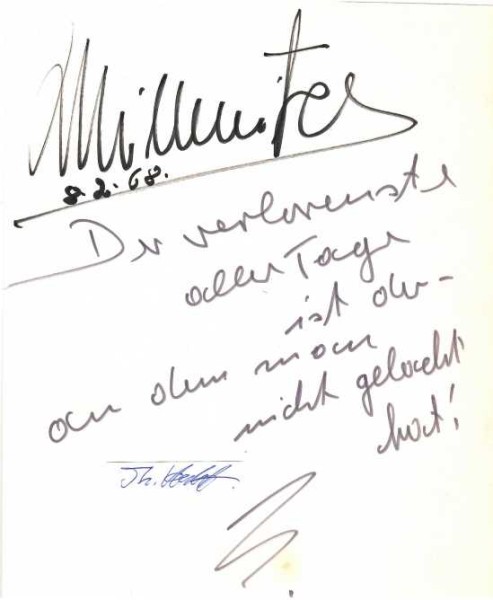 8.2.68.
Der verlorenste
aller Tage
ist der-
an dem man
nicht gelacht
hat!
Th.